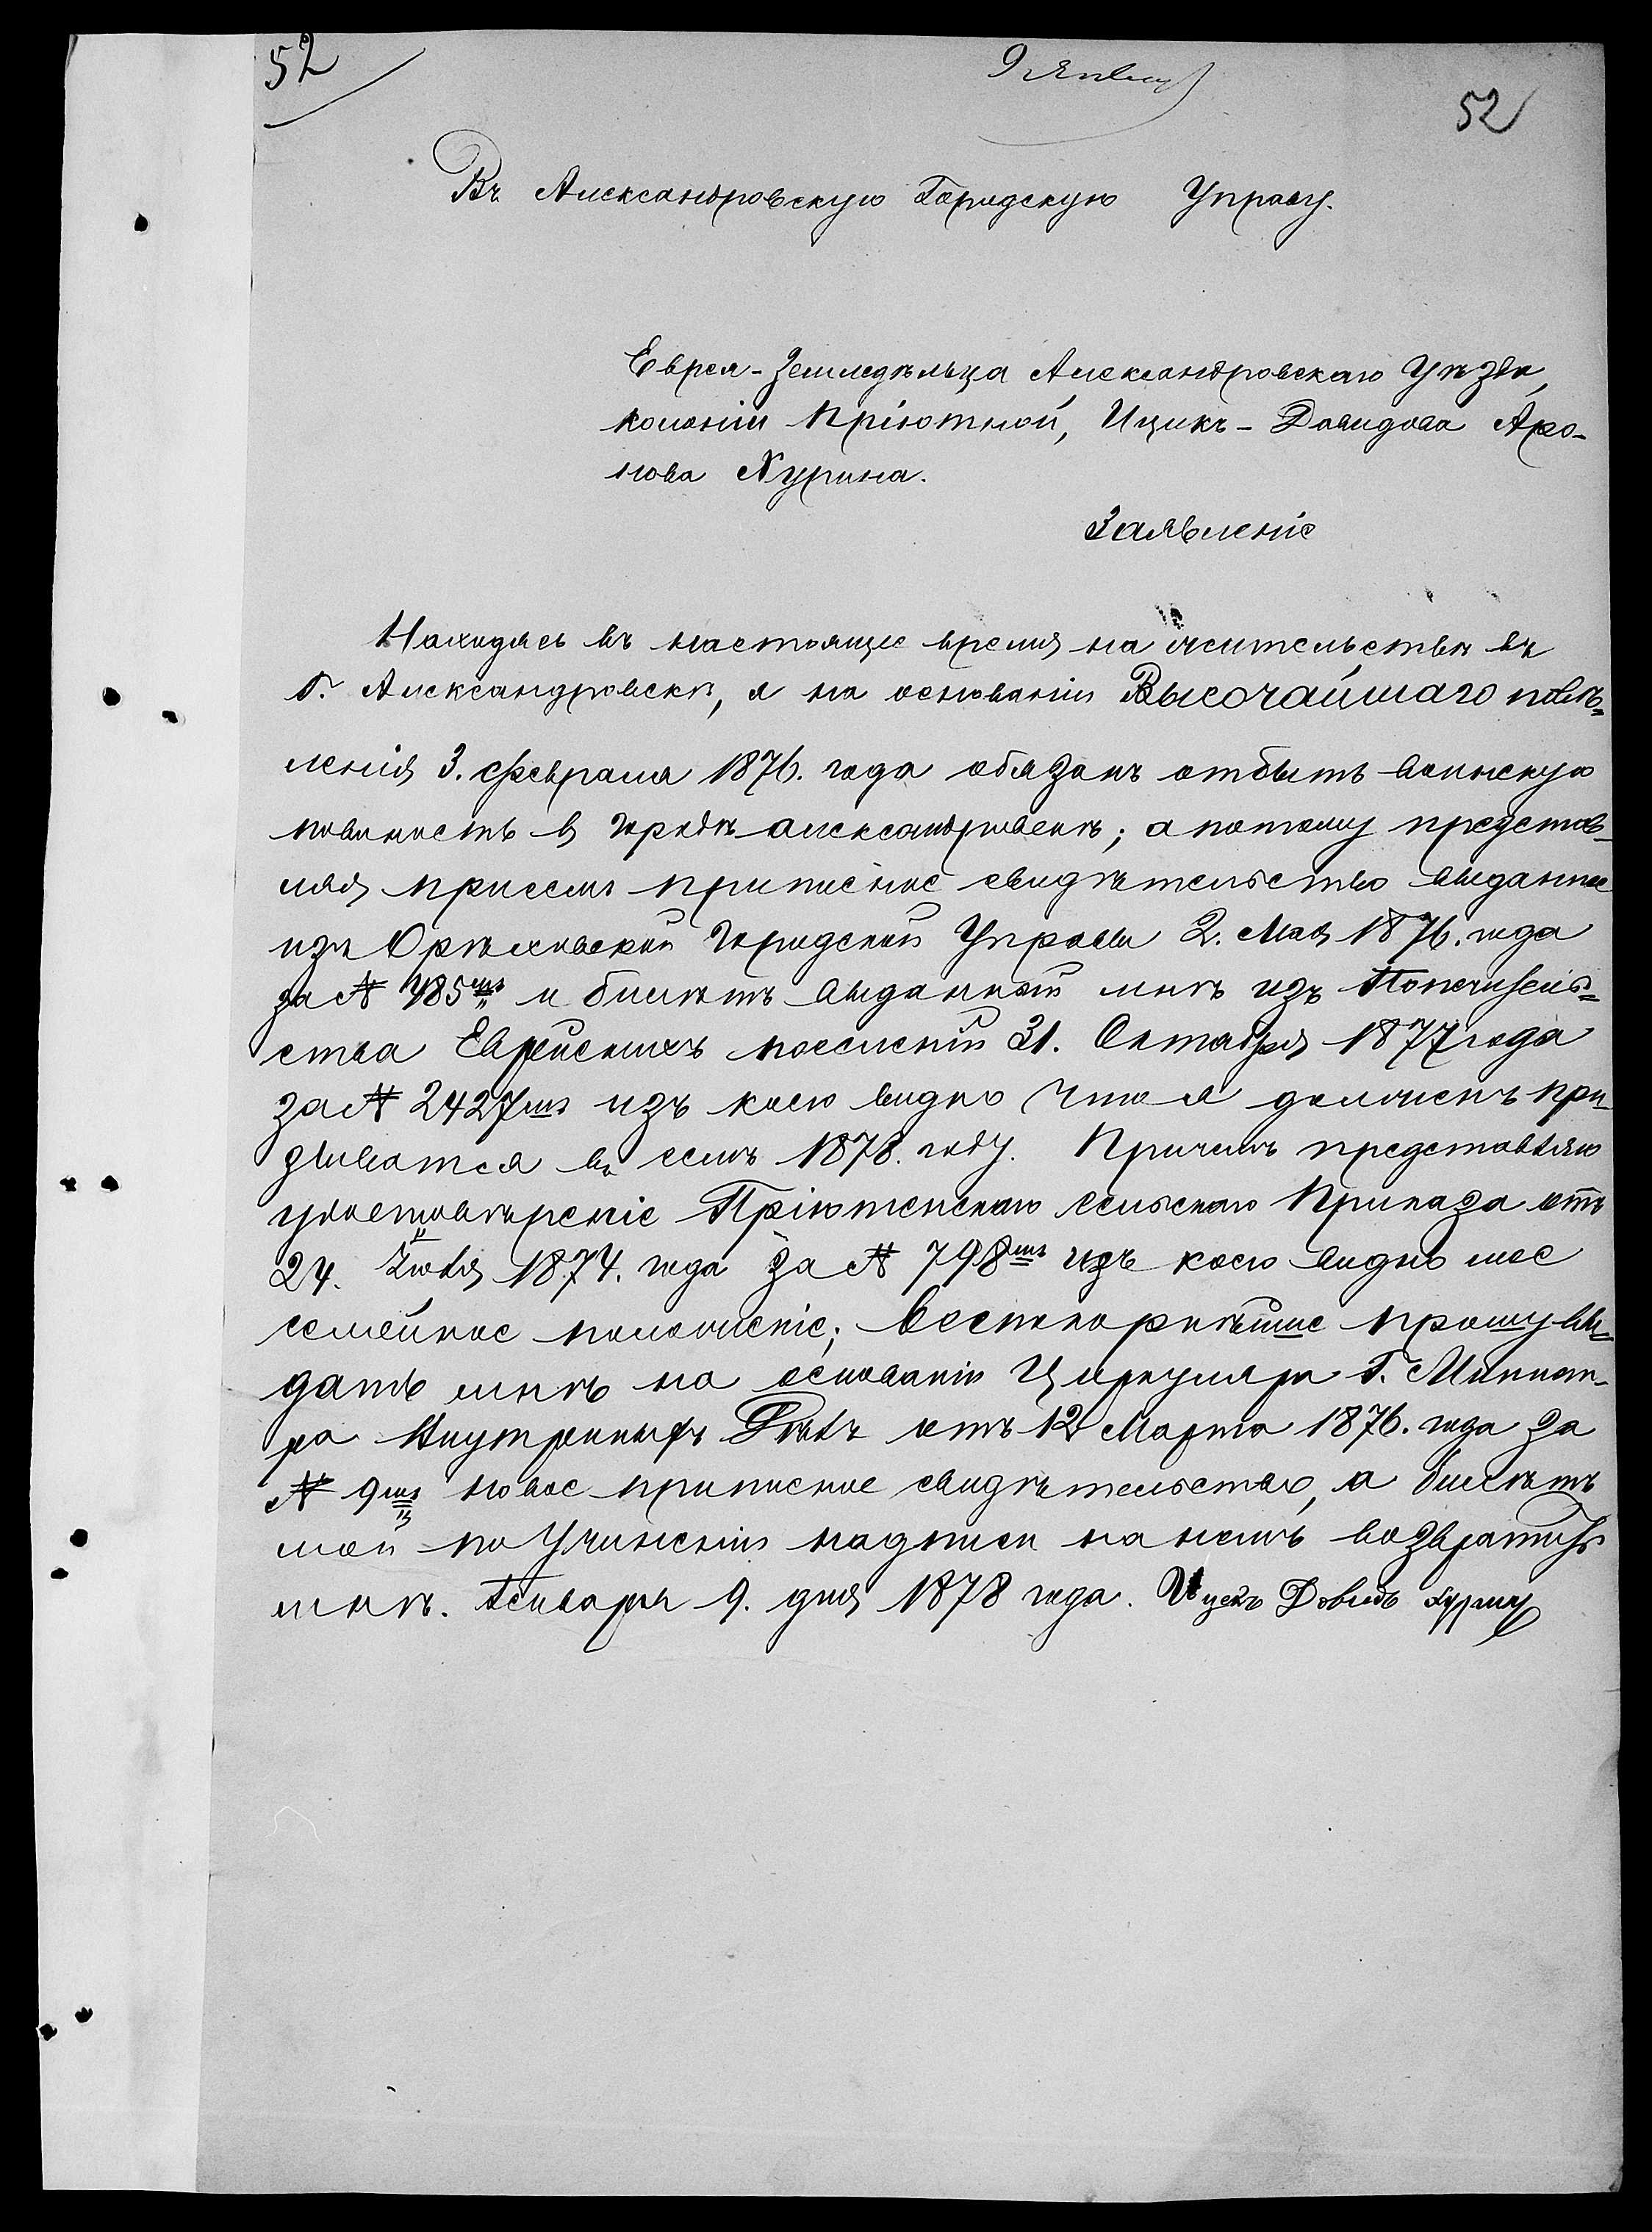 52
9 Января
52
Въ Александровскую Городскую Управу.
Еврея-Земледѣльца Александровскаго Уѣзда,
колоніи Пріютной, Ицикъ-Давидова Аро-
нова Хурина.
Заявленіе
Находясь въ настоящее время на жительствѣ въ
г. Александровскѣ, я на основаніи Высочайшаго повѣ=
ленія 3. Февраля 1876. года обязанъ отбыть воинскую
повиность въ городѣ Александровскѣ; а потому представ-
ляя присемъ приписное свидѣтельство выданное
изъ Орѣховской Городской Управы 2. Мая 1876. года
за № 485мъ и билетъ выданной мнѣ изъ Попечитель=
ства Еврейскихъ поселеній 31. Октября 1877 года
за № 2427мъ изъ коего видно что я долженъ при=
зыватся въ семъ 1878. году. Причемъ представляю
удостовѣреніе Пріютенскаго сельскаго Приказа отъ
24. Іюня 1874. года за № 798мъ изъ коего видно мое
семейное положеніе; всепокорнѣйше прошу вы=
дать мнѣ на основаніи Циркуляра Г. Минист-
ра Внутреннихъ Дѣлъ отъ 12 Марта 1876. года за
№ 9мъ новое приписное свидѣтельство, а билетъ
мой по Учиненіи надписи на немъ возвратить
мнѣ. Генваря 9. дня 1878 года. Ицекъ Довидъ Хуринъ